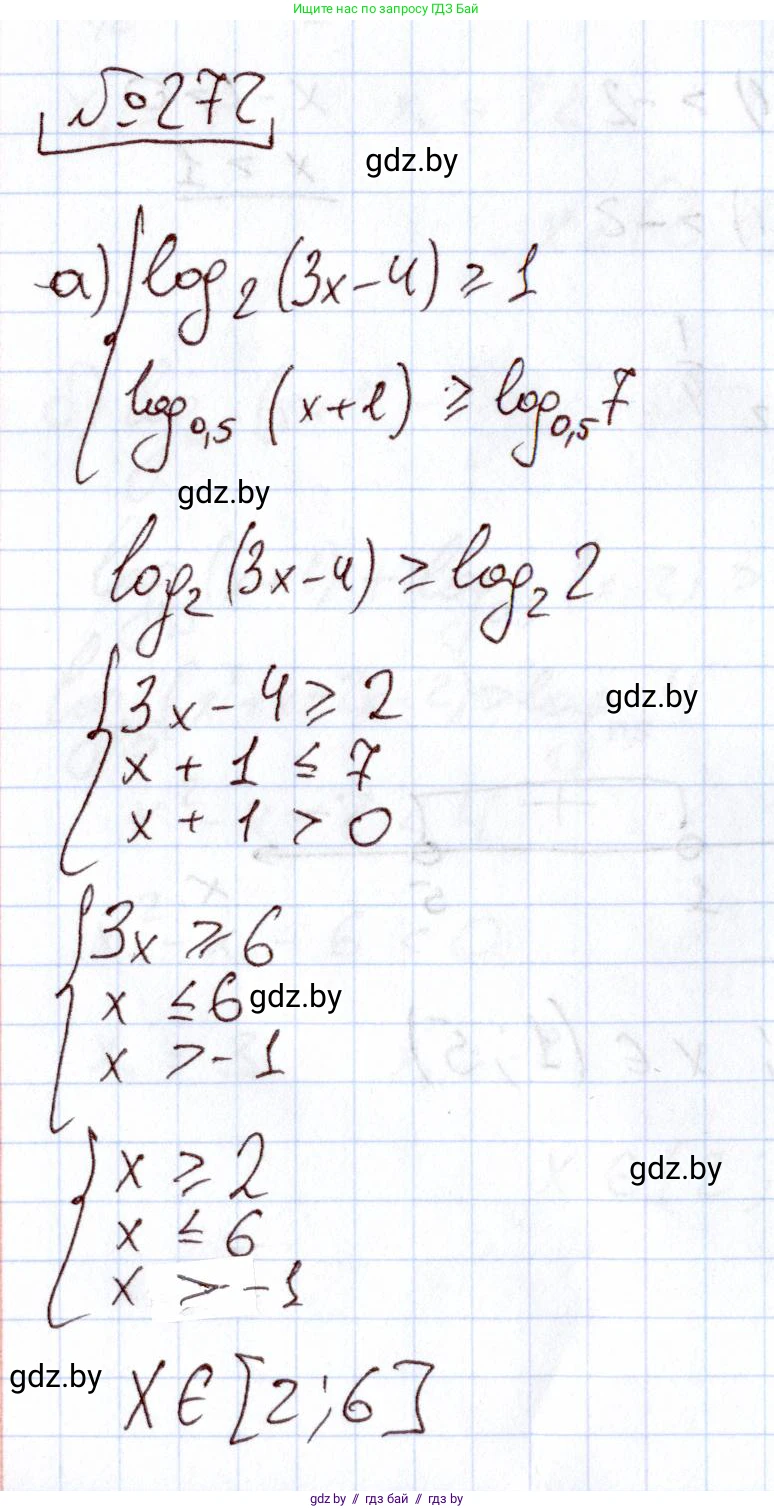 Ищите нас по запросу ГДЗ Бай
№272
gdz.by
а) { log₂(3x-4) ≥ 1
log₀,₅(x+1) ≥ log₀,₅7
gdz.by
log₂(3x-4) ≥ log₂2
{ 3x-4 ≥ 2
gdz.by
x + 1 ≤ 7
x + 1 > 0
{ 3x ≥ 6
x ≤ 6
gdz.by
x > -1
{ x ≥ 2
gdz.by
x ≤ 6
x > -1
gdz.by
X ∈ [2;6]
gdz.by // гдз бай // gdz.by